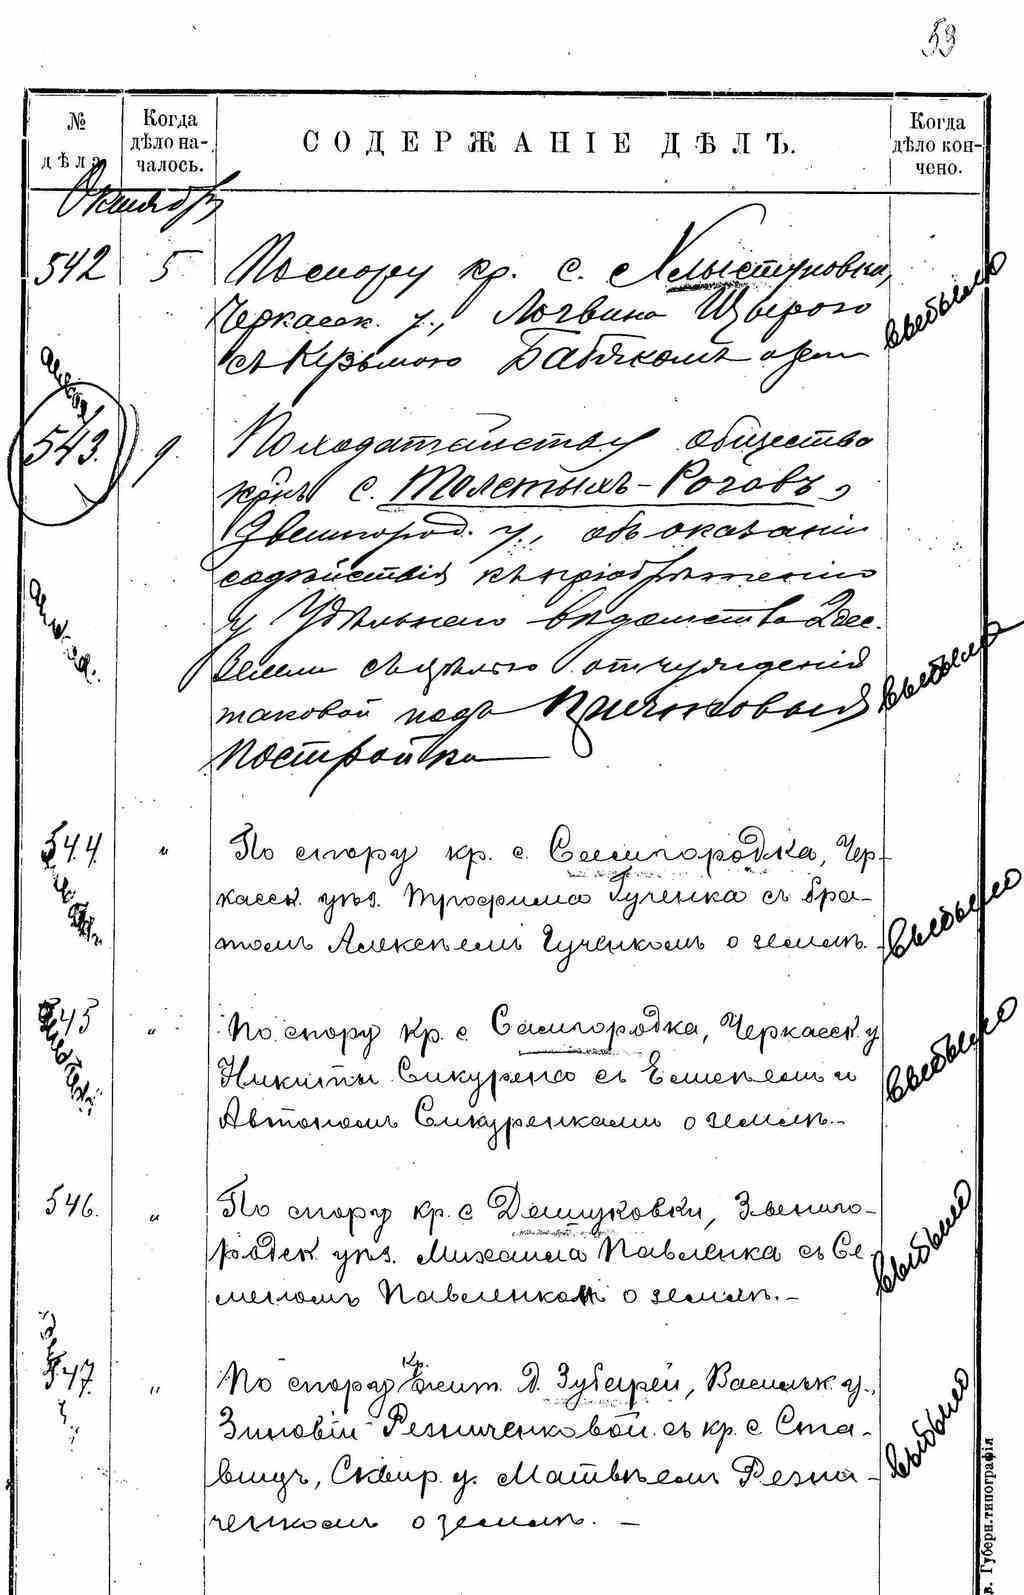 53
№ дѣла
Когда дѣло началось.
СОДЕРЖАНІЕ ДѢЛЪ.
Когда дѣло кончено.
Октябрь
542 5 По спору кр. с. Хлыстуновки,
Черкасск. у., Логвина Щырого
съ Кузьмою Бабякомъ о зем
выбыло
543. 9. По ходатайству общества
крнъ с. Толстыхъ-Роговъ,
Звенигород. у., объ оказаніи
содѣйствія къ пріобрѣтенію
у Удѣльнаго вѣдомства 2 дес.
земли съ цѣлью отчужденія
таковой подъ
постройки
выбыло
544. " По спору кр. с. Самгородка, Чер-
касск. уѣз. Трофима Гученка съ бра-
томъ Алексѣемъ Гученкомъ о землѣ.
выбыло
545 " По спору кр. с. Самгородка, Черкасск. у
Никиты Сикуренко съ Елисѣемъ и
Автономъ Сикуренками о землѣ.-
выбыло
546. " По спору кр. с Демуковки, Звениго-
родск. уѣз. Михаила Павленка съ Се
меномъ Павленкомъ о землѣ.-
выбыло
547. " По спору кр. жит. д. Зубарей, Васильк. у.,
Зиновіи Резниченковой съ кр. с Ста-
вищъ, Сквир. у. Матвѣемъ Резни-
ченкомъ о землѣ. -
выбыло
Губерн. типографія